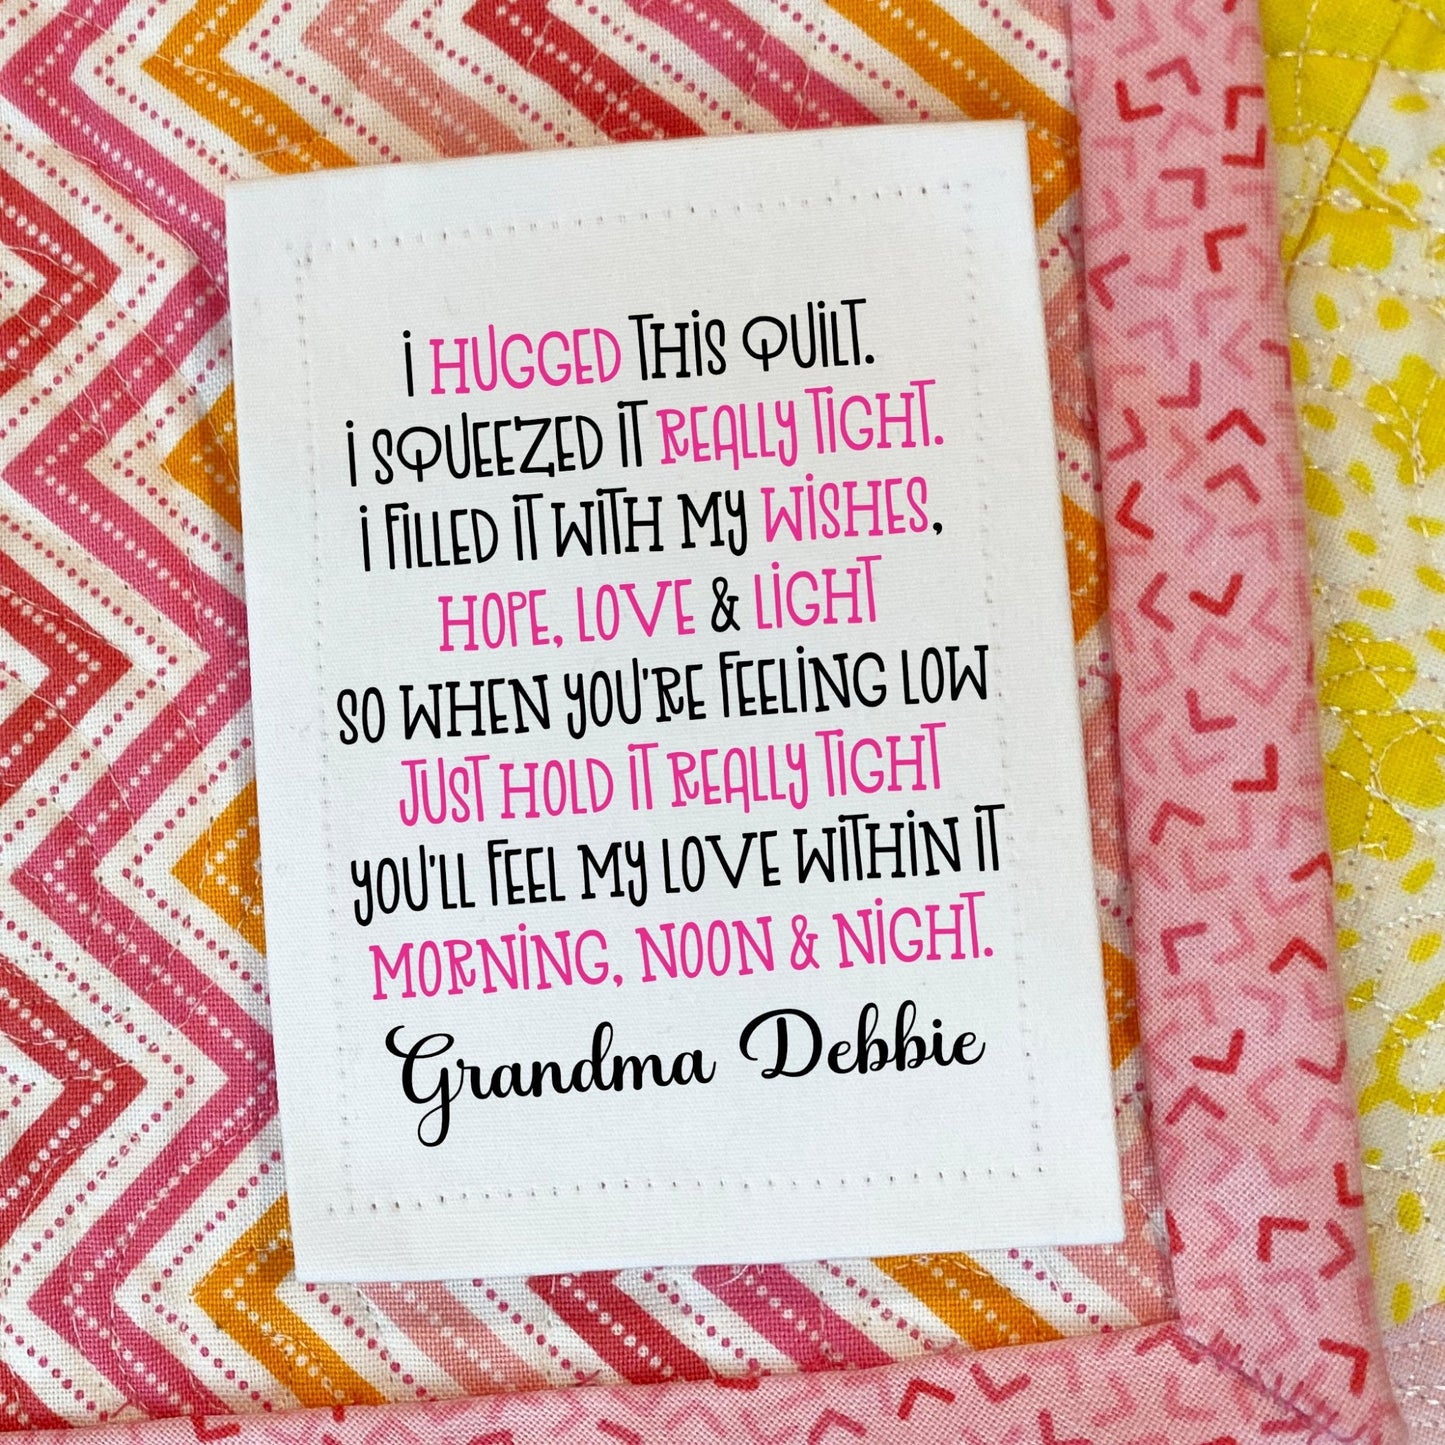 I HUGGED THIS QUILT.
I SQUEEZED IT REALLY TIGHT.
I FILLED IT WITH MY WISHES,
HOPE, LOVE & LIGHT
SO WHEN YOU'RE FEELING LOW
JUST HOLD IT REALLY TIGHT
YOU'LL FEEL MY LOVE WITHIN IT
MORNING, NOON & NIGHT.
Grandma Debbie